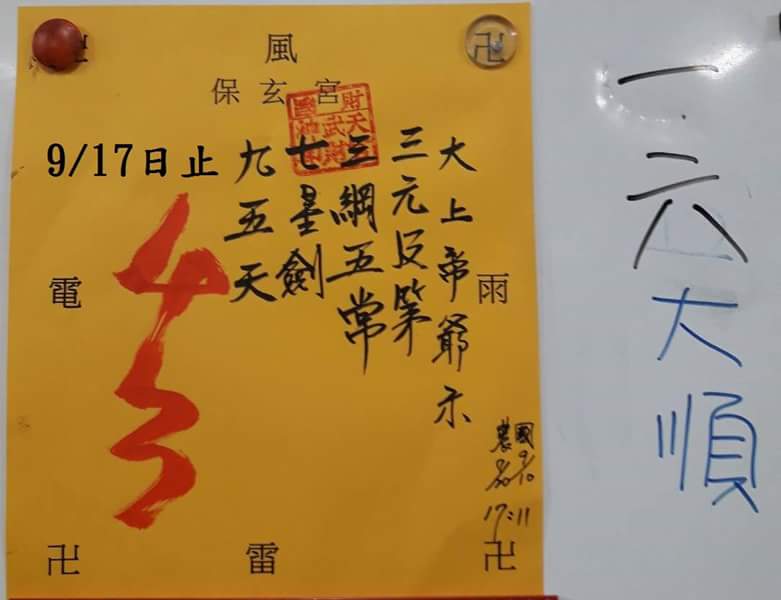 卍 風 卍
保玄宮
大上帝爺示
三元反第
三綱五常
七星劍
九五天
9/17日止
45
電 雨
農 國
8/20 9/10
17:11
卍 雷 卍
一.六大順